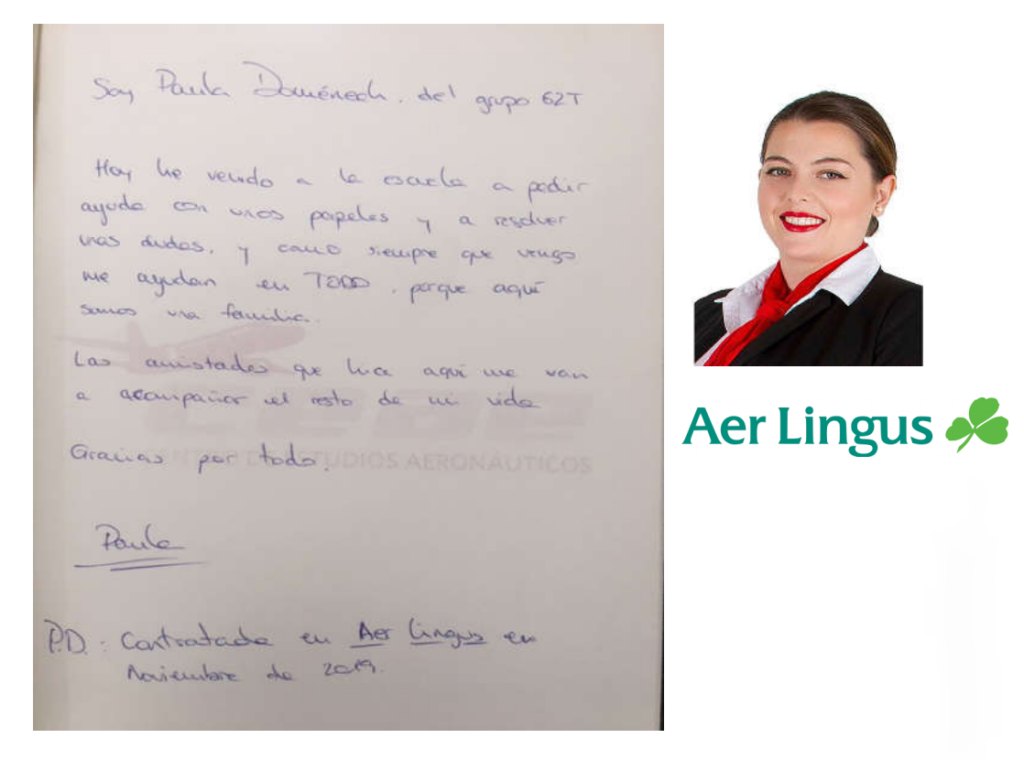 Soy Paula Doménech. del grupo 62T
Hoy he venido a la escuela a pedir
ayuda con unos papeles y a resolver
unas dudas, y como siempre que vengo
me ayudan en TODO, porque aquí
somos una familia.
Las amistades que hice aquí me van
a acompañar el resto de mi vida
Gracias por todo.
CENTRO DE ESTUDIOS AERONÁUTICOS
Paula
P.D.: Contratada en Aer Lingus en
Noviembre de 2019.
Aer Lingus